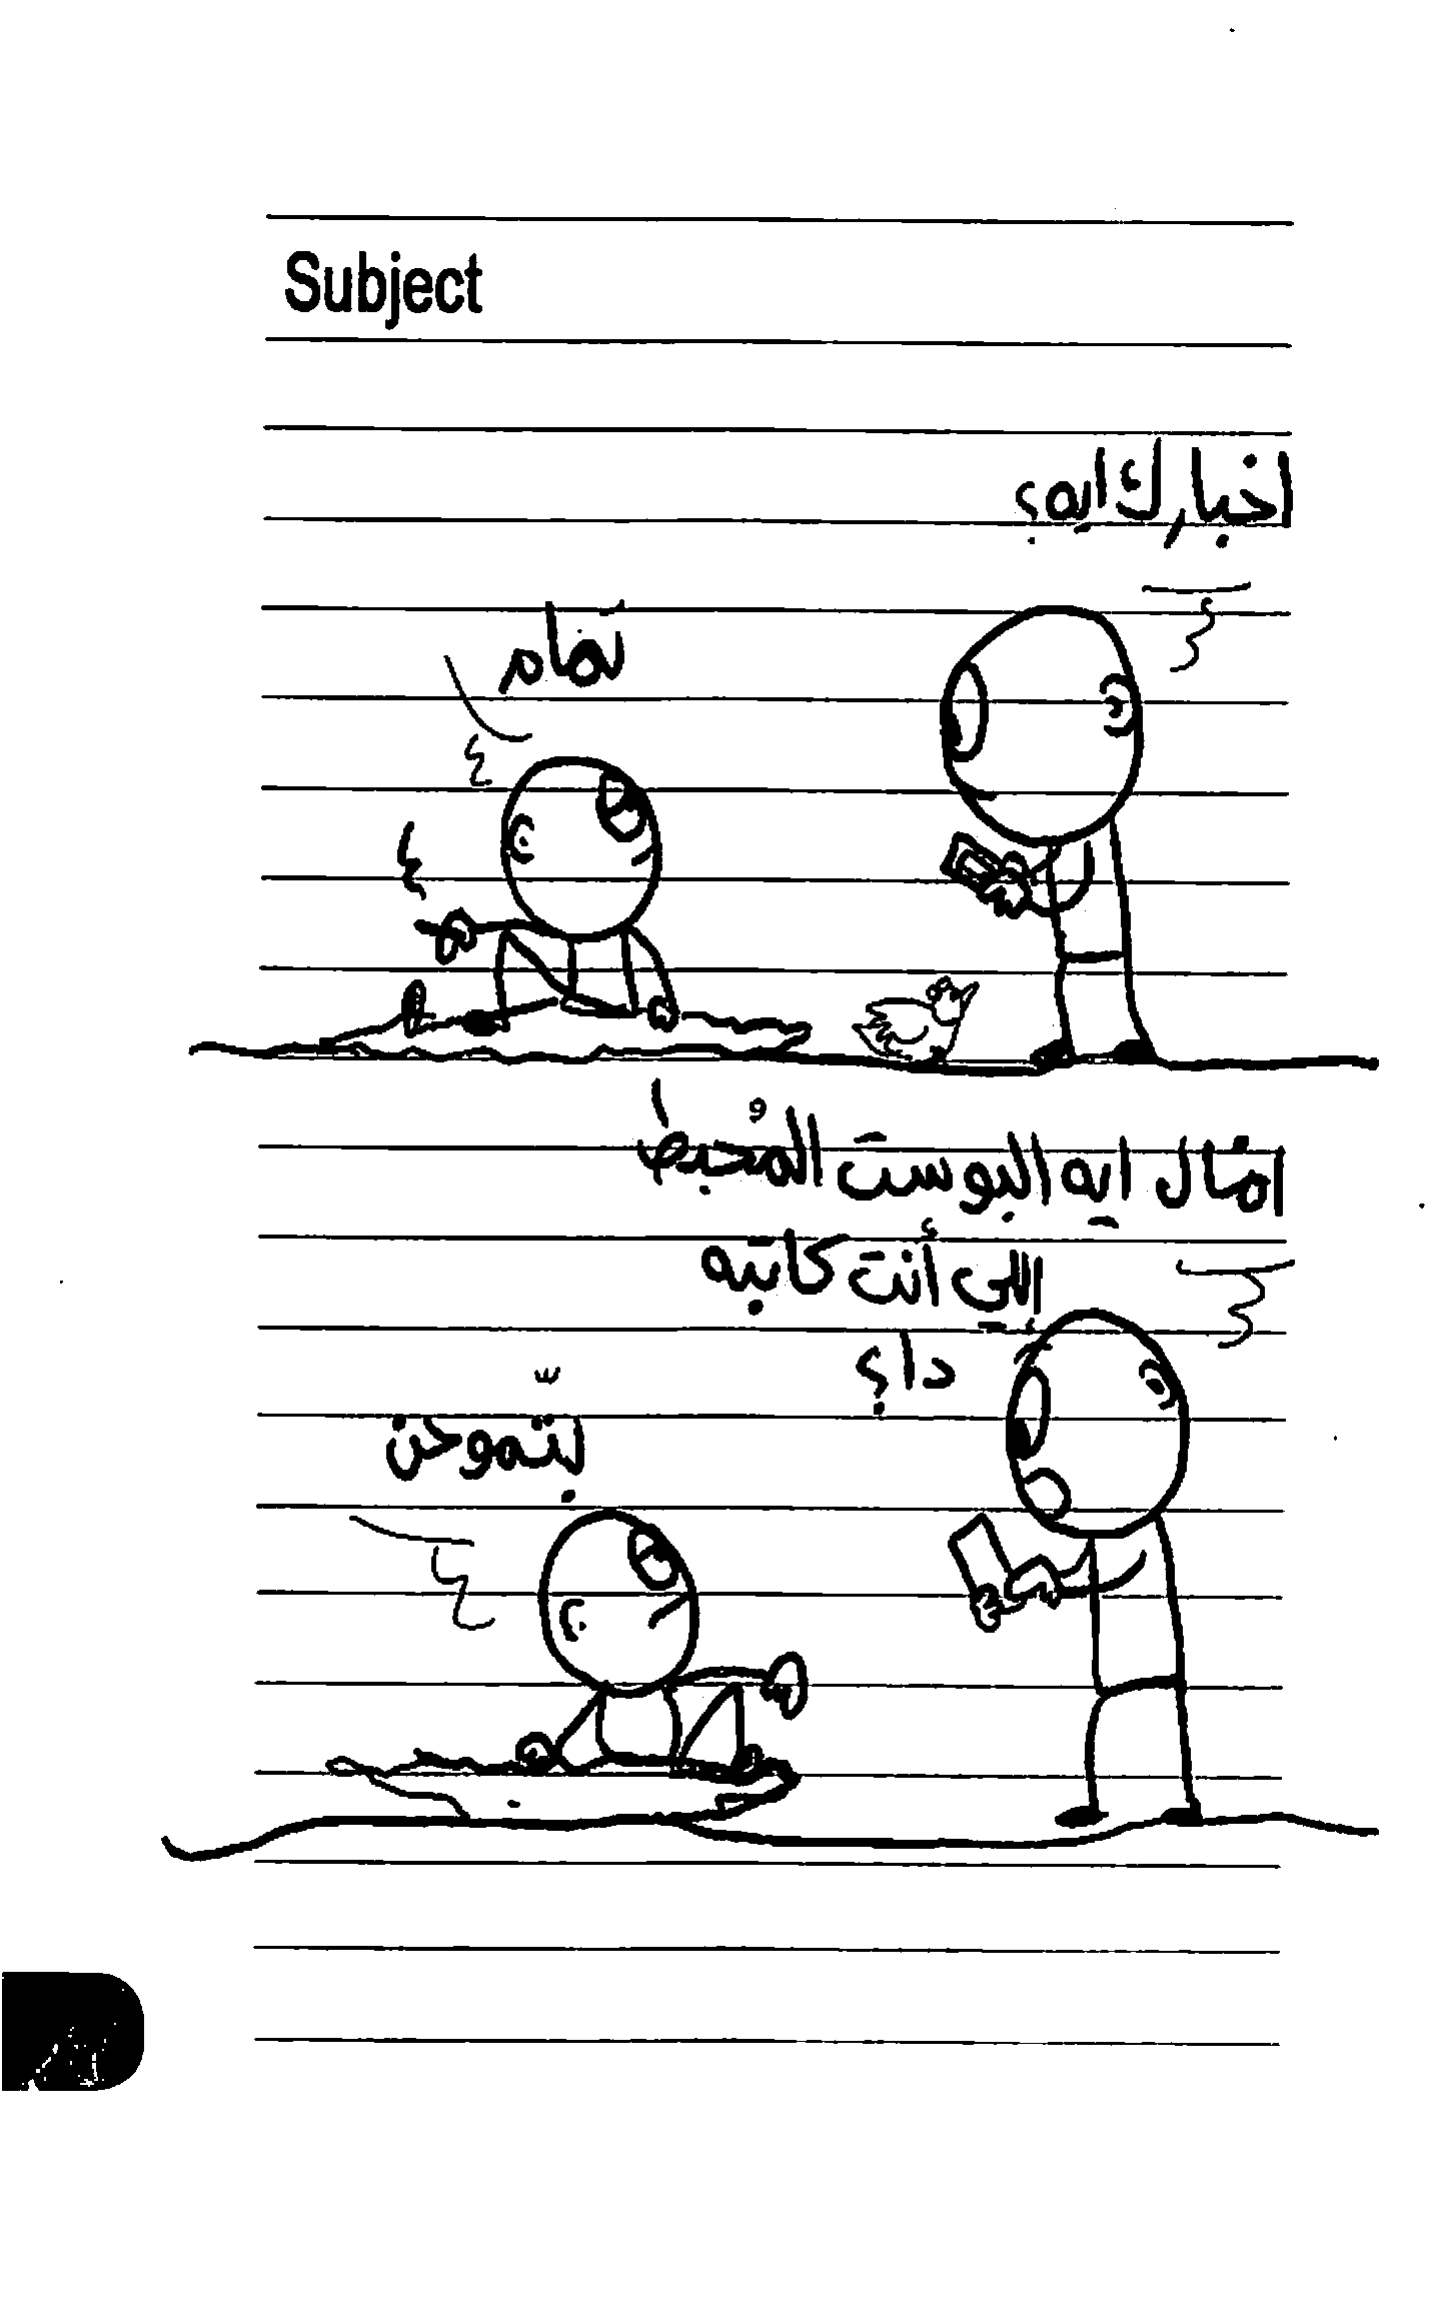 Subject
اخبارك ايه؟
تمام
امّال ايه البوست المُحبط
إللي أنت كاتبه
دا؟
بتموحن